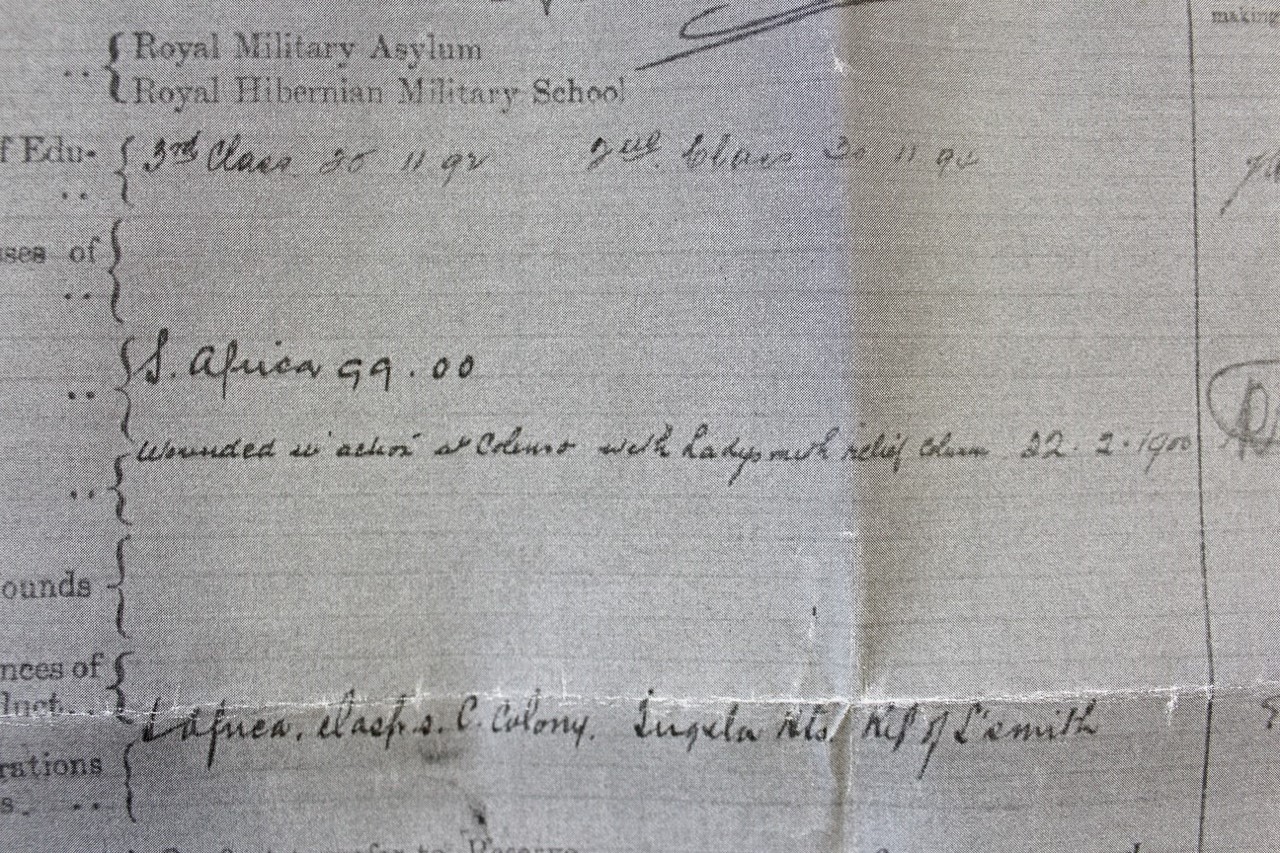 making
Royal Military Asylum
..
Royal Hibernian Military School
f Edu- 3rd Class 30 11 92 2nd Class 30 11 92
..
ses of
..
S. Africa 99.00
..
Wounded in action at Colenso with Ladysmith relief Colum 22.2.1900
..
ounds
nces of
duct..
S Africa. clasps. C. Colony. Tugela Hts Rlf of L'smith
rations
s. ..
to Reserve